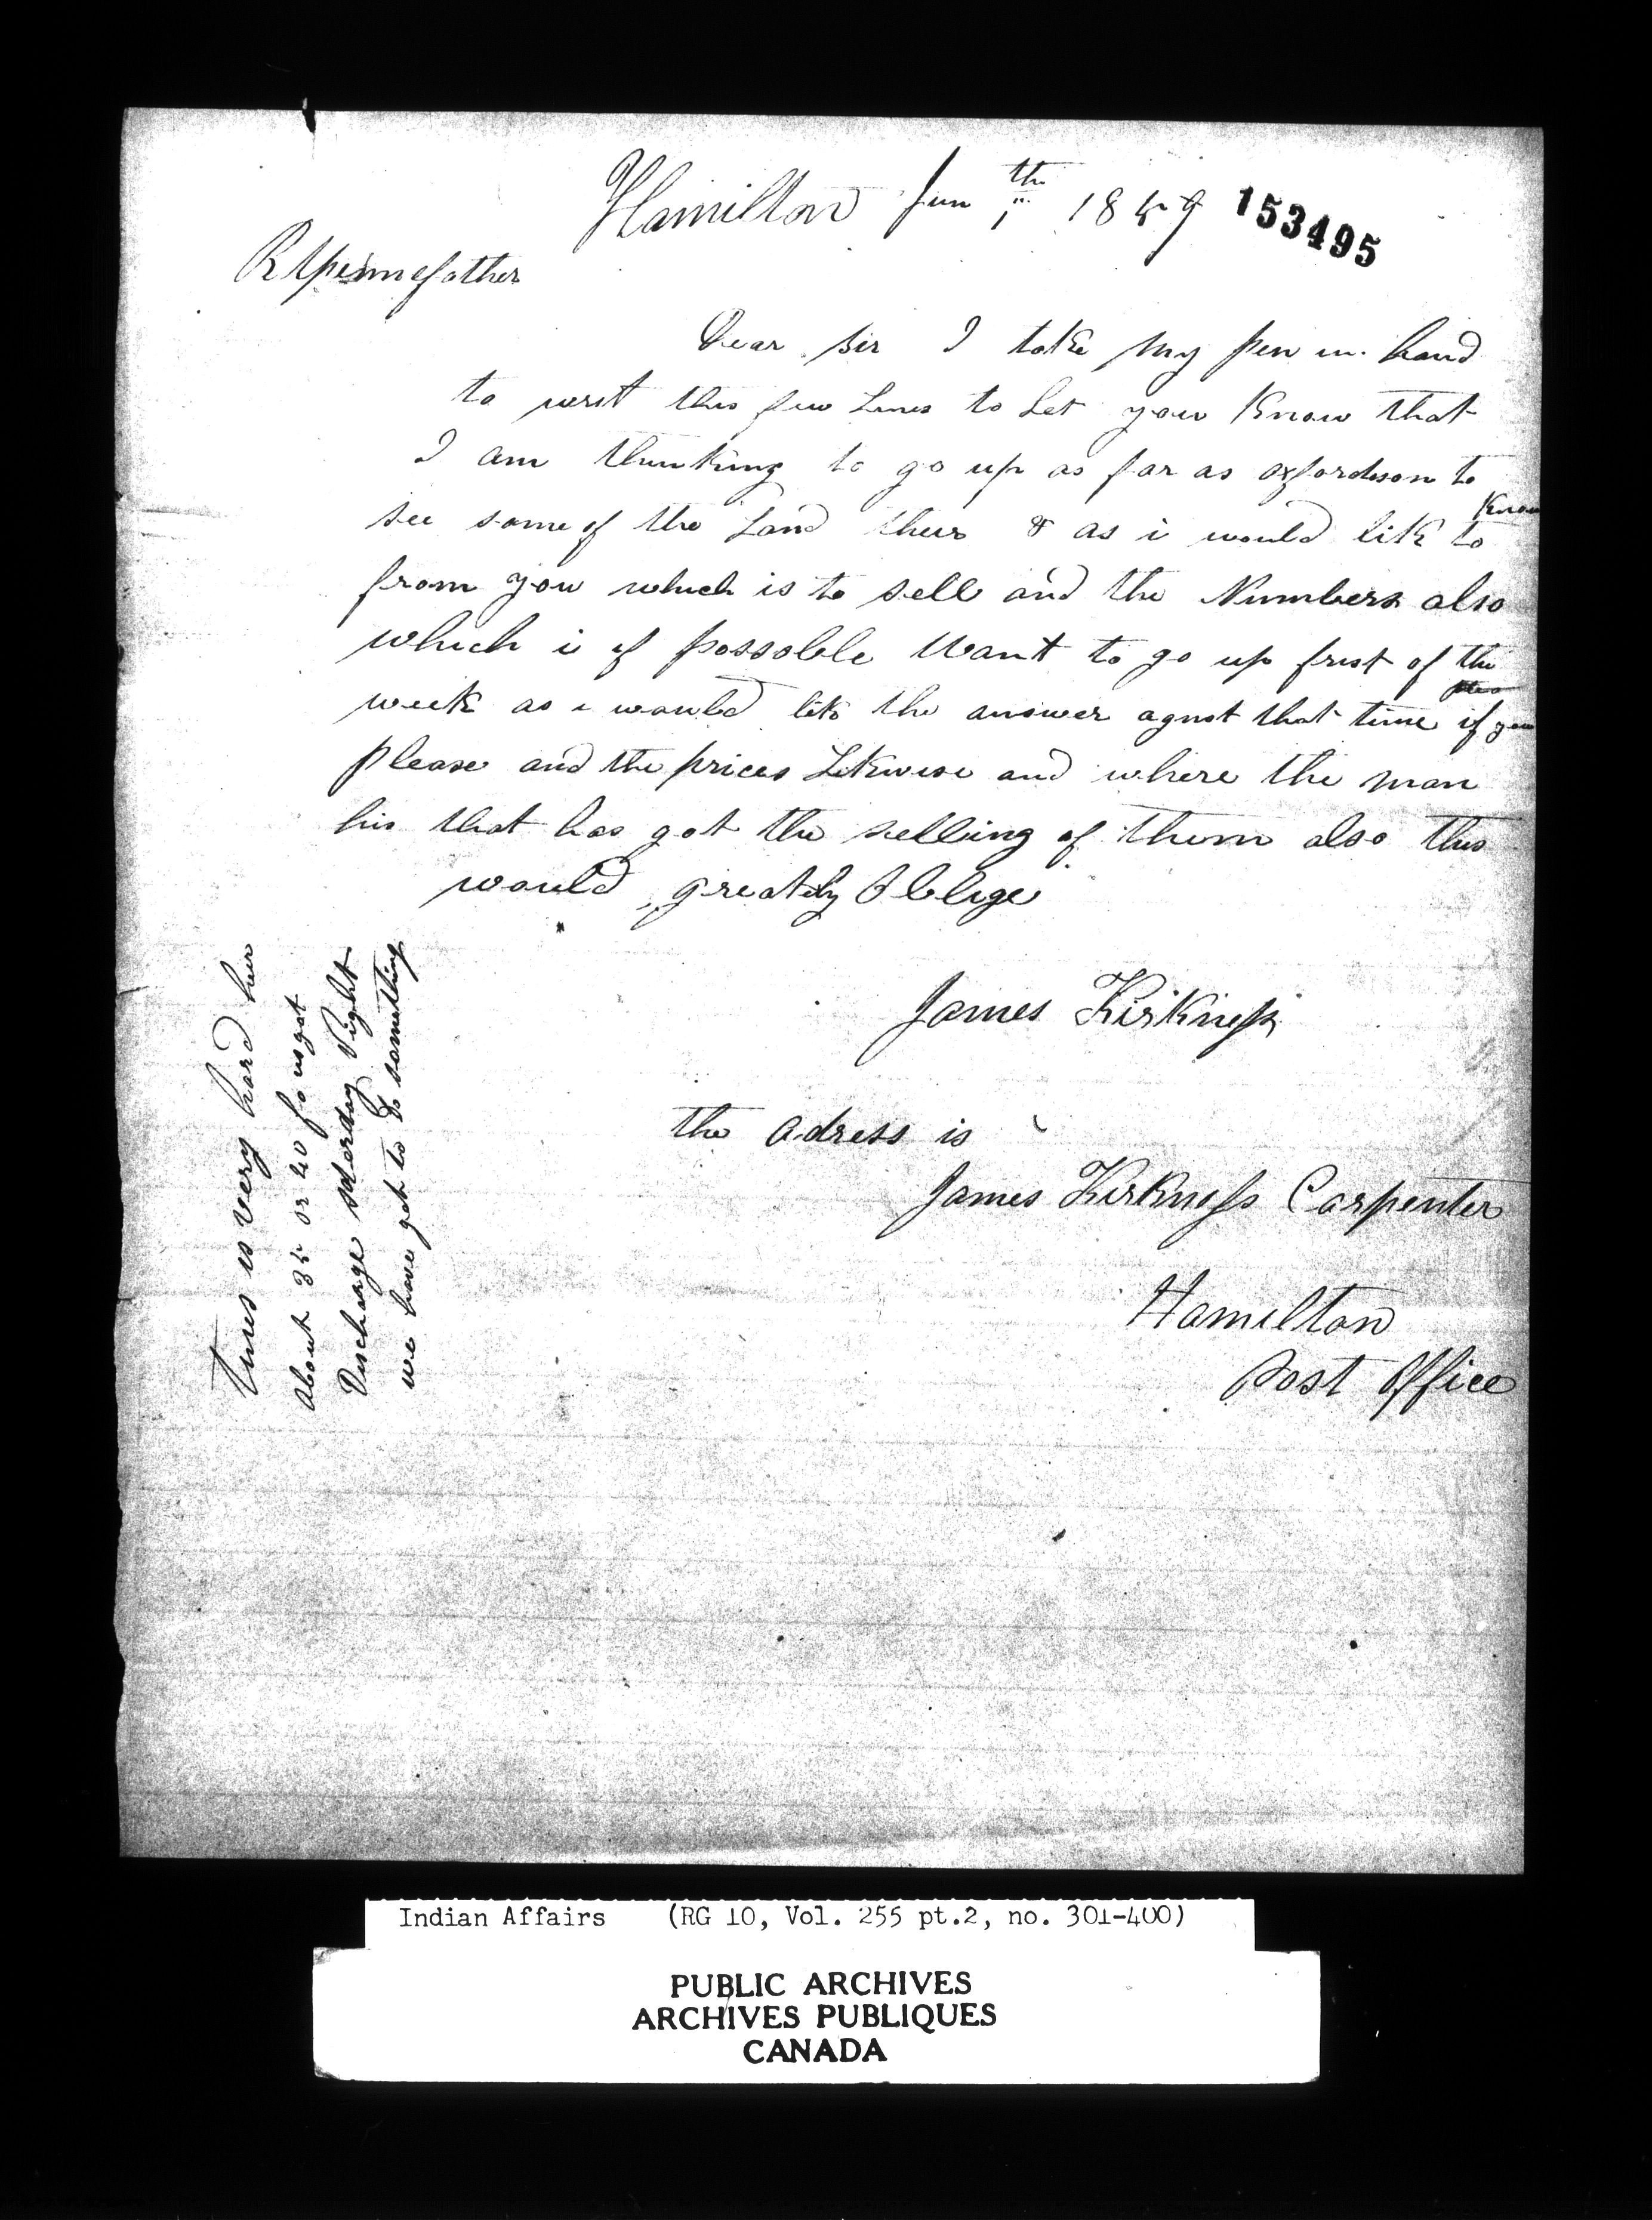 Hamilton Jun 1th 1859 153495
R Tpennefather
Dear sir I take my pen in hand
to writ this few Lines to Let you Know that
I am thinking to go up as far as oxfordson to
Know
see some of the Land theur & as i would lik to
from you which is to sell and the Numbers also
which i if possoble Want to go up frist of the
week as i would lik the answer agnst that time if you
please and the prices Likwise and where the man
his that has got the selling of them also this
would greatly Oblige
James Kirkness
the adress is
James Kirkness Carpenter
Hamilton
Post Office
Times is very hard hear
about 35 or 40 of us got
Discharge saterday Night
we have got to do something
Indian Affairs (RG 10, Vol. 255 pt.2, no. 301-400)
PUBLIC ARCHIVES
ARCHIVES PUBLIQUES
CANADA